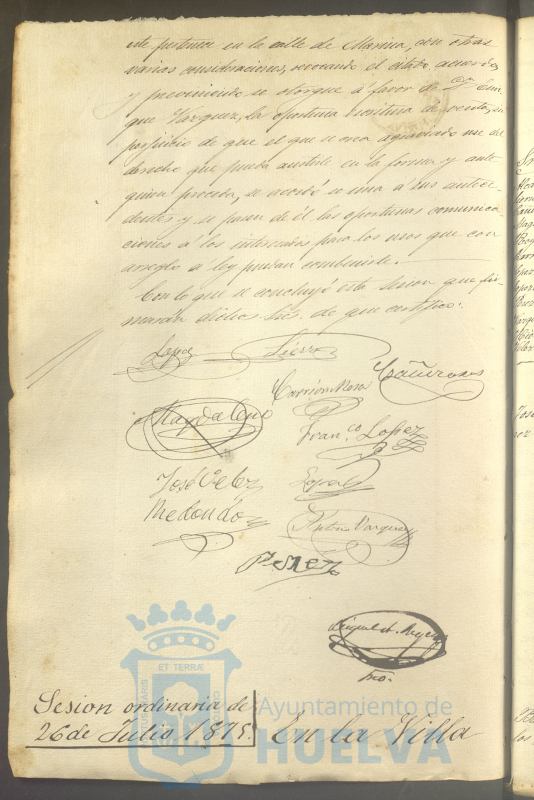 este pertenece en la calle de Marina, con otras
varias consideraciones, revocando el citado acuerdo,
y previniendo se otorgue á favor de Dn Enri
que Vazquez, la oportuna escritura de venta, sin
perjuicio de que el que se crea agraviado use del
derecho que pueda asistirle en la forma y ante
quien proceda, se acordó se una á sus antece
dentes y se pasen de él las oportunas comunica
ciones á los interesados para los usos que con
arreglo á ley puedan combenirle.
Con lo que se concluyó esta sesion que fir
marán dichos Sres. de que certifico.
Lopez Sierra
Carrion Rosa Cañizares
Magdaleno
Franco. Lopez
José Velez
Redondo
Anton Vazquez
Perez
Miguel A.
Srio.
Sesion ordinaria de
26 de Julio 1875.
En la Villa
ET TERRÆ
Ayuntamiento de
HUELVA